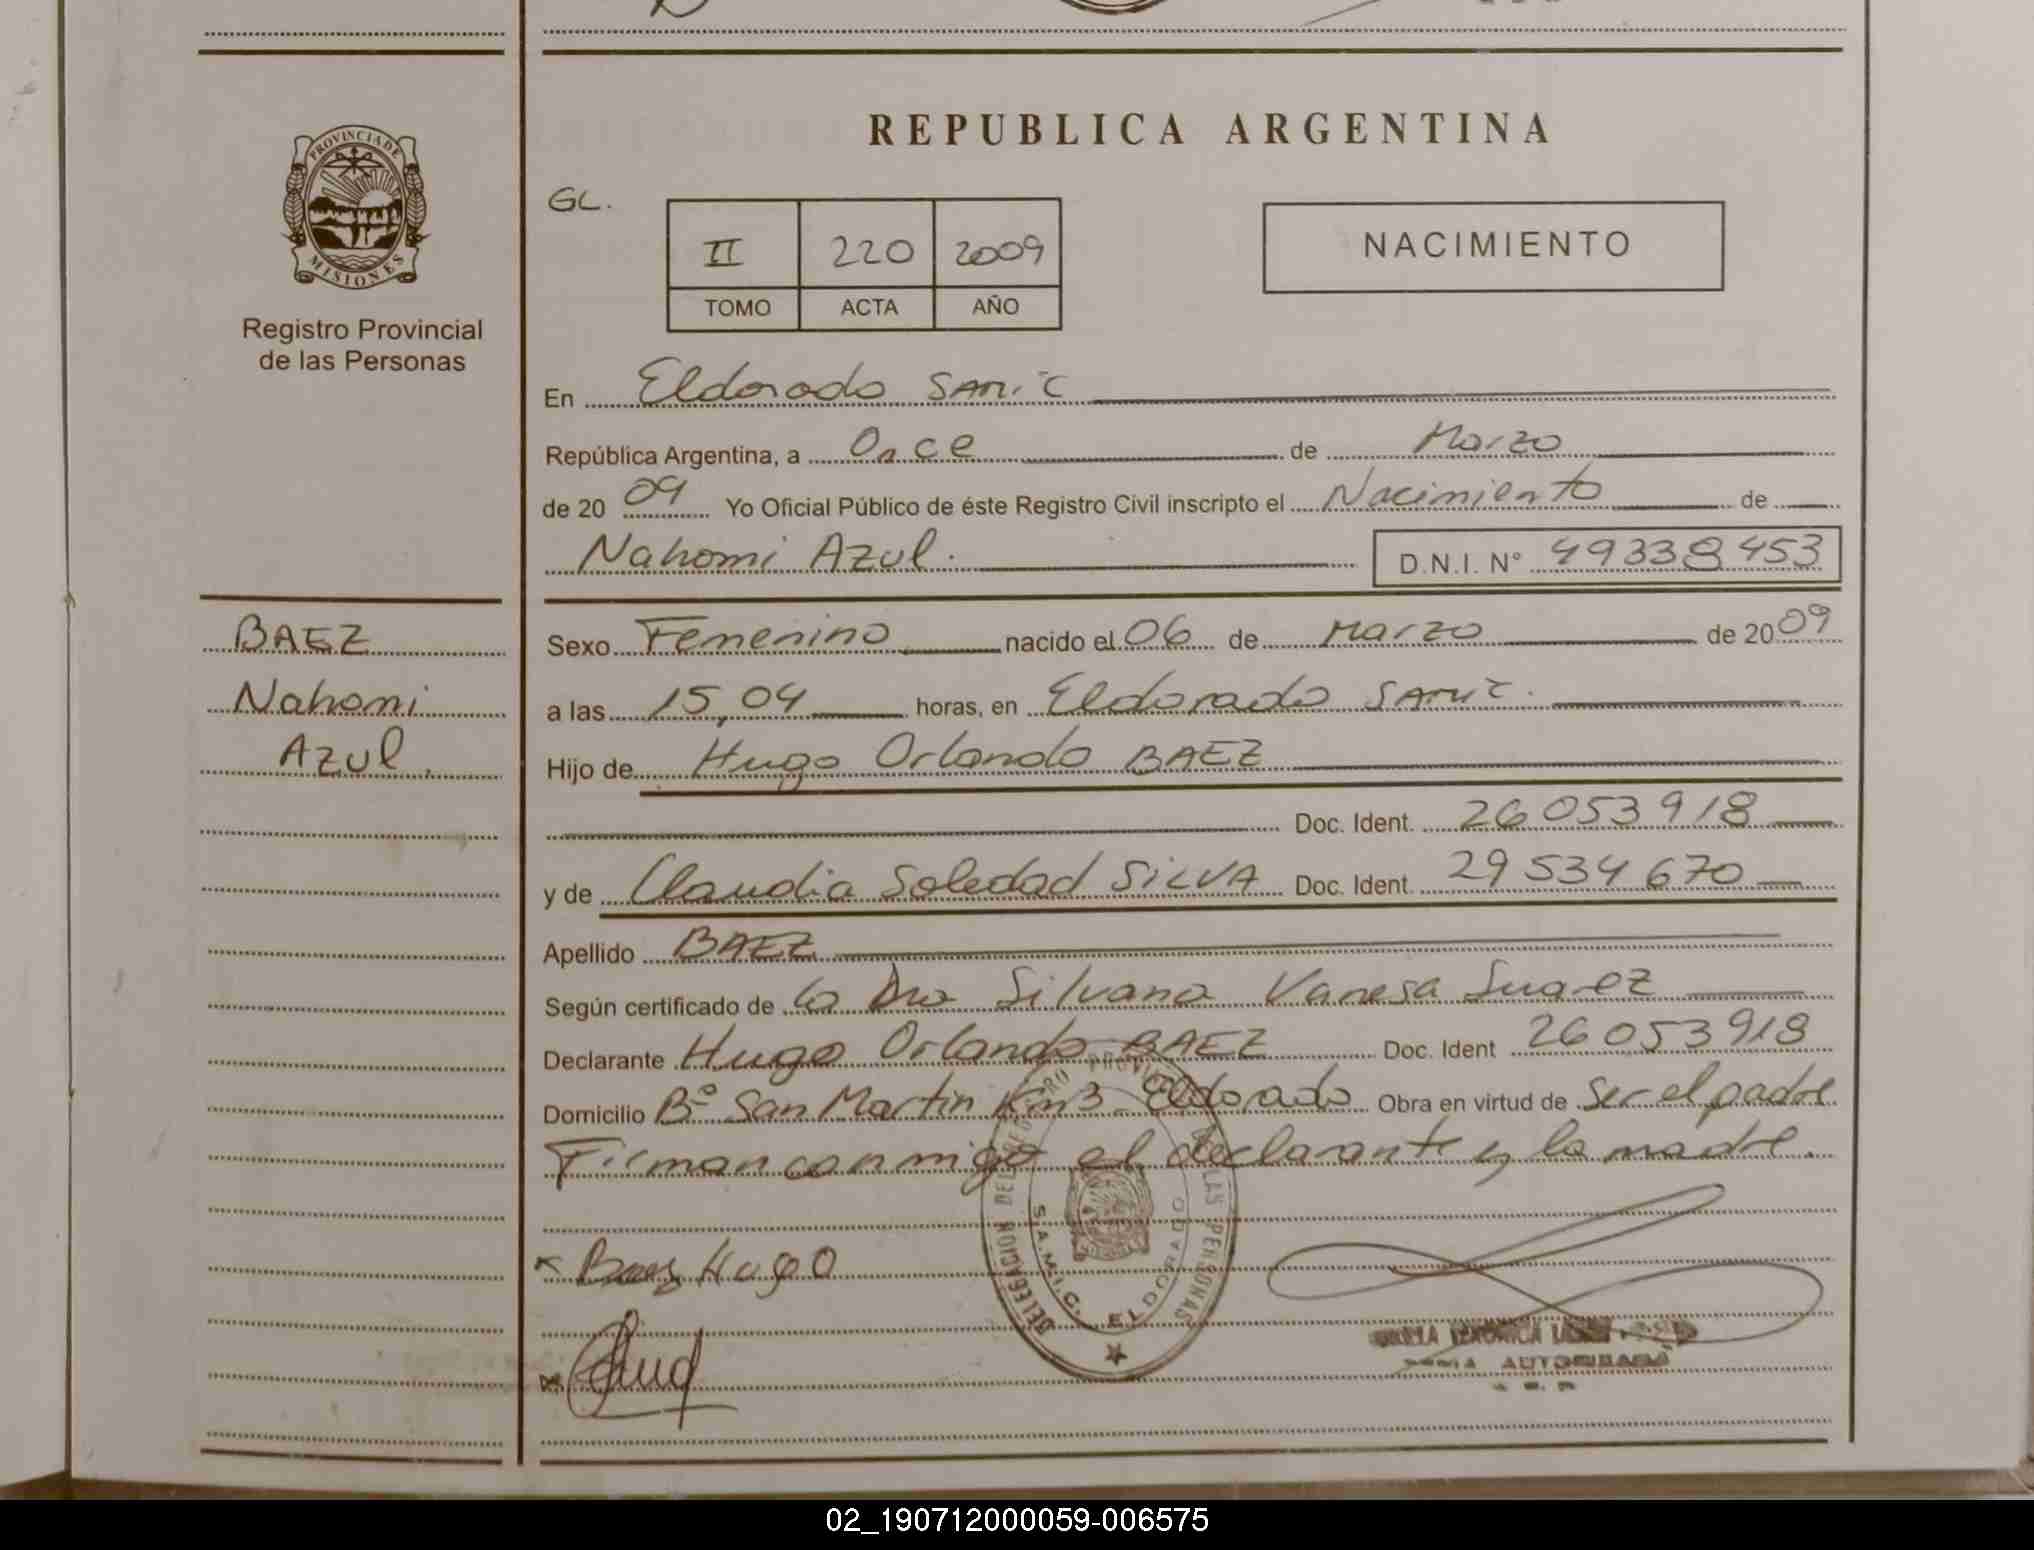 REPUBLICA ARGENTINA
PROVINCIA DE MISIONES
Registro Provincial
de las Personas
GL.
II 220 2009
TOMO ACTA AÑO
NACIMIENTO
En Eldorado SAMIC
República Argentina, a Once de Marzo
de 2009 Yo Oficial Público de éste Registro Civil inscripto el Nacimiento de
Nahomi Azul. D.N.I. Nº 49338453
BAEZ
Nahomi
Azul.
Sexo Femenino nacido el 06 de Marzo de 2009
a las 15,04 horas, en Eldorado SAMIC.
Hijo de Hugo Orlando BAEZ
Doc. Ident. 26053918
y de Claudia Soledad SILVA Doc. Ident. 29534670
Apellido BAEZ
Según certificado de la Dra Silvana Vanesa Suarez
Declarante Hugo Orlando BAEZ Doc. Ident 26053918
Domicilio Bº San Martin Km3 Eldorado Obra en virtud de Ser el padre
Firman conmigo el declarante y la madre.
DELEGACION DEL REGISTRO PROVINCIAL DE LAS PERSONAS
S.A.M.I.C. ELDORADO
x Baez Hugo
AUTORIZADA
02_190712000059-006575